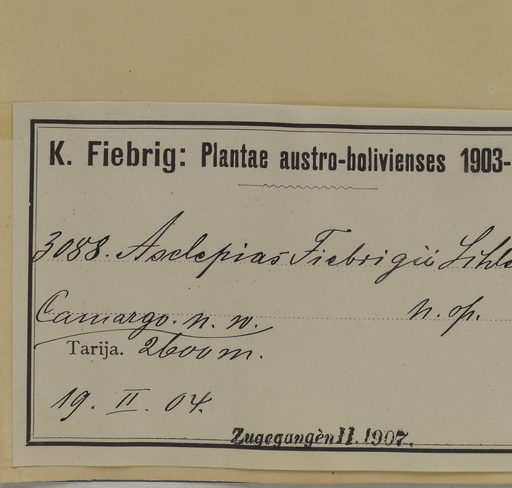 K. Fiebrig: Plantae austro-bolivienses 1903-
3088. Asclepias Fiebrigii Schle
Camargo. n. w. n. sp.
Tarija. 2600 m.
19. II. 04.
Zugegangen II. 1907.